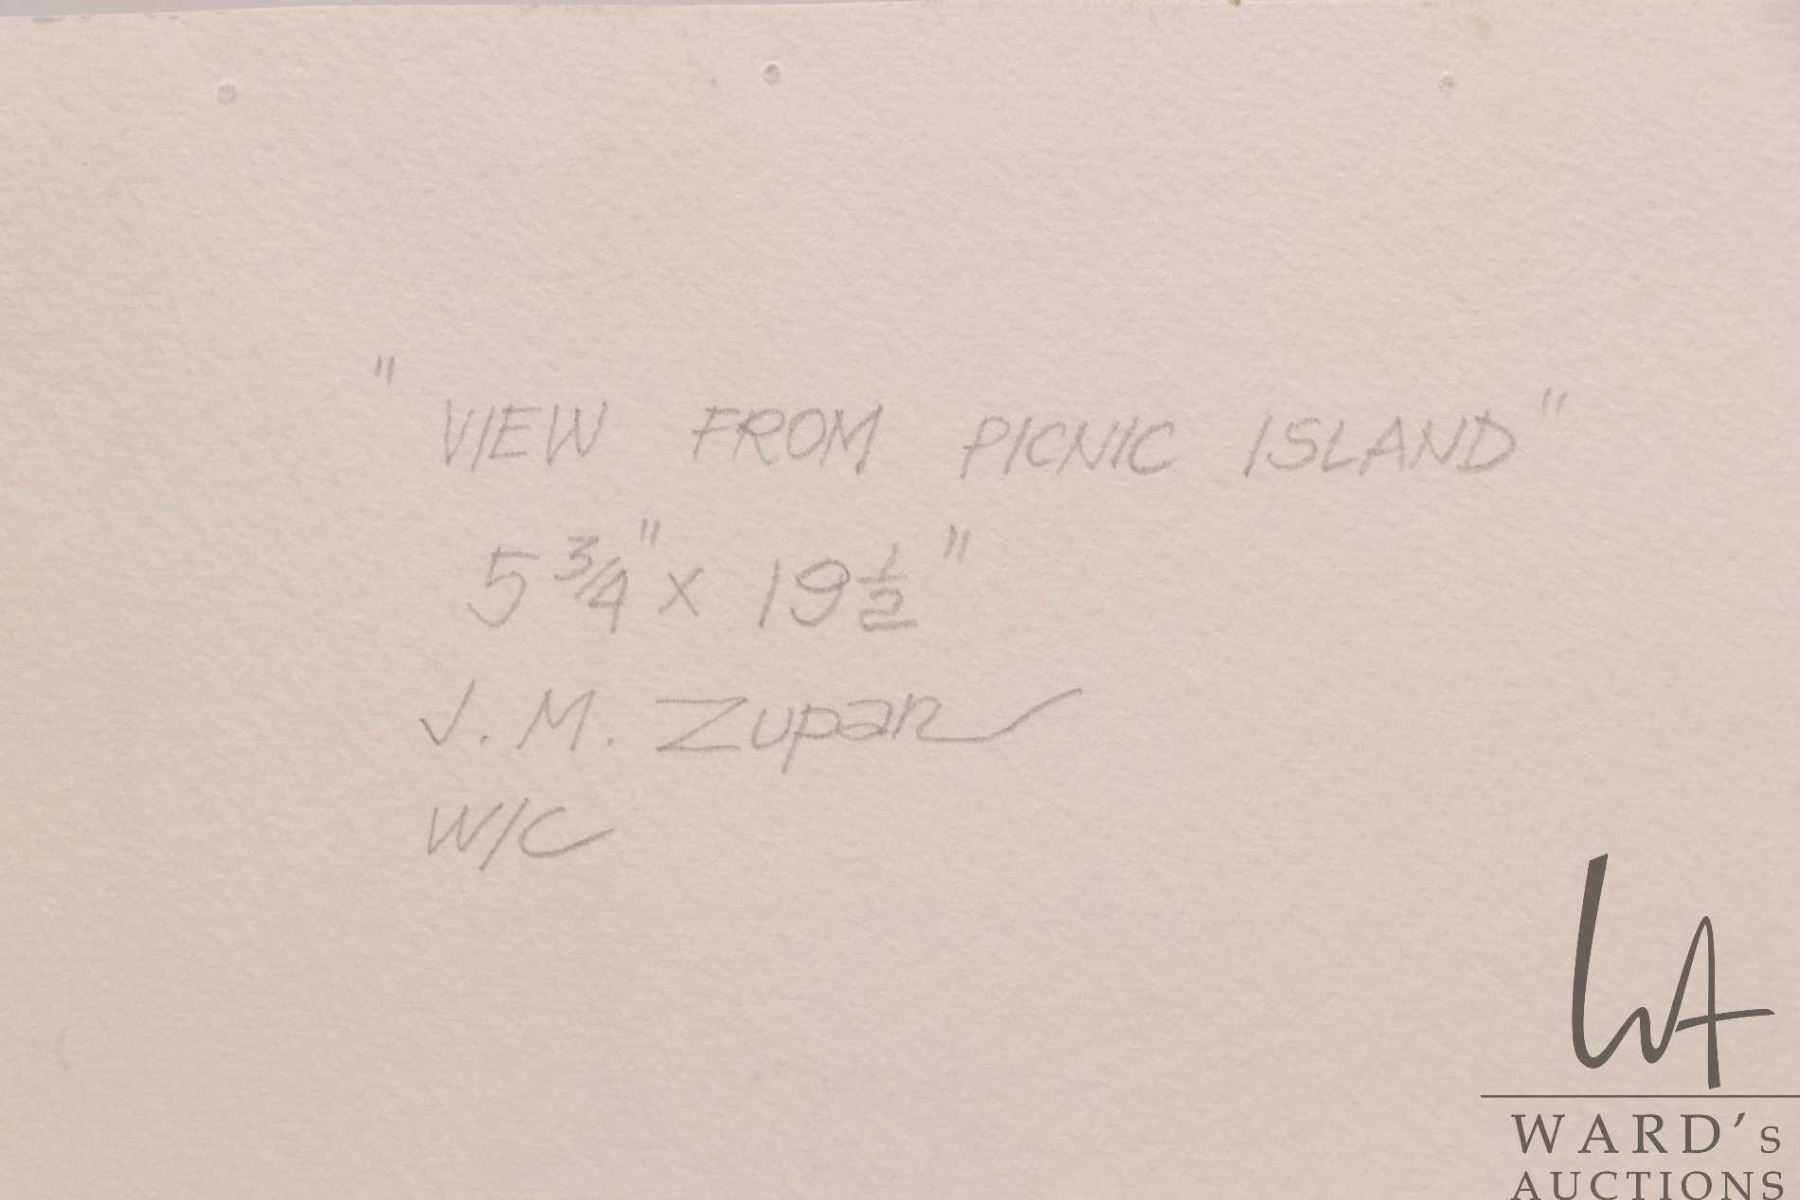 " VIEW FROM PICNIC ISLAND "
5 3/4" x 19 1/2"
J. M. Zupan
W/C
WA
WARD's
AUCTIONS